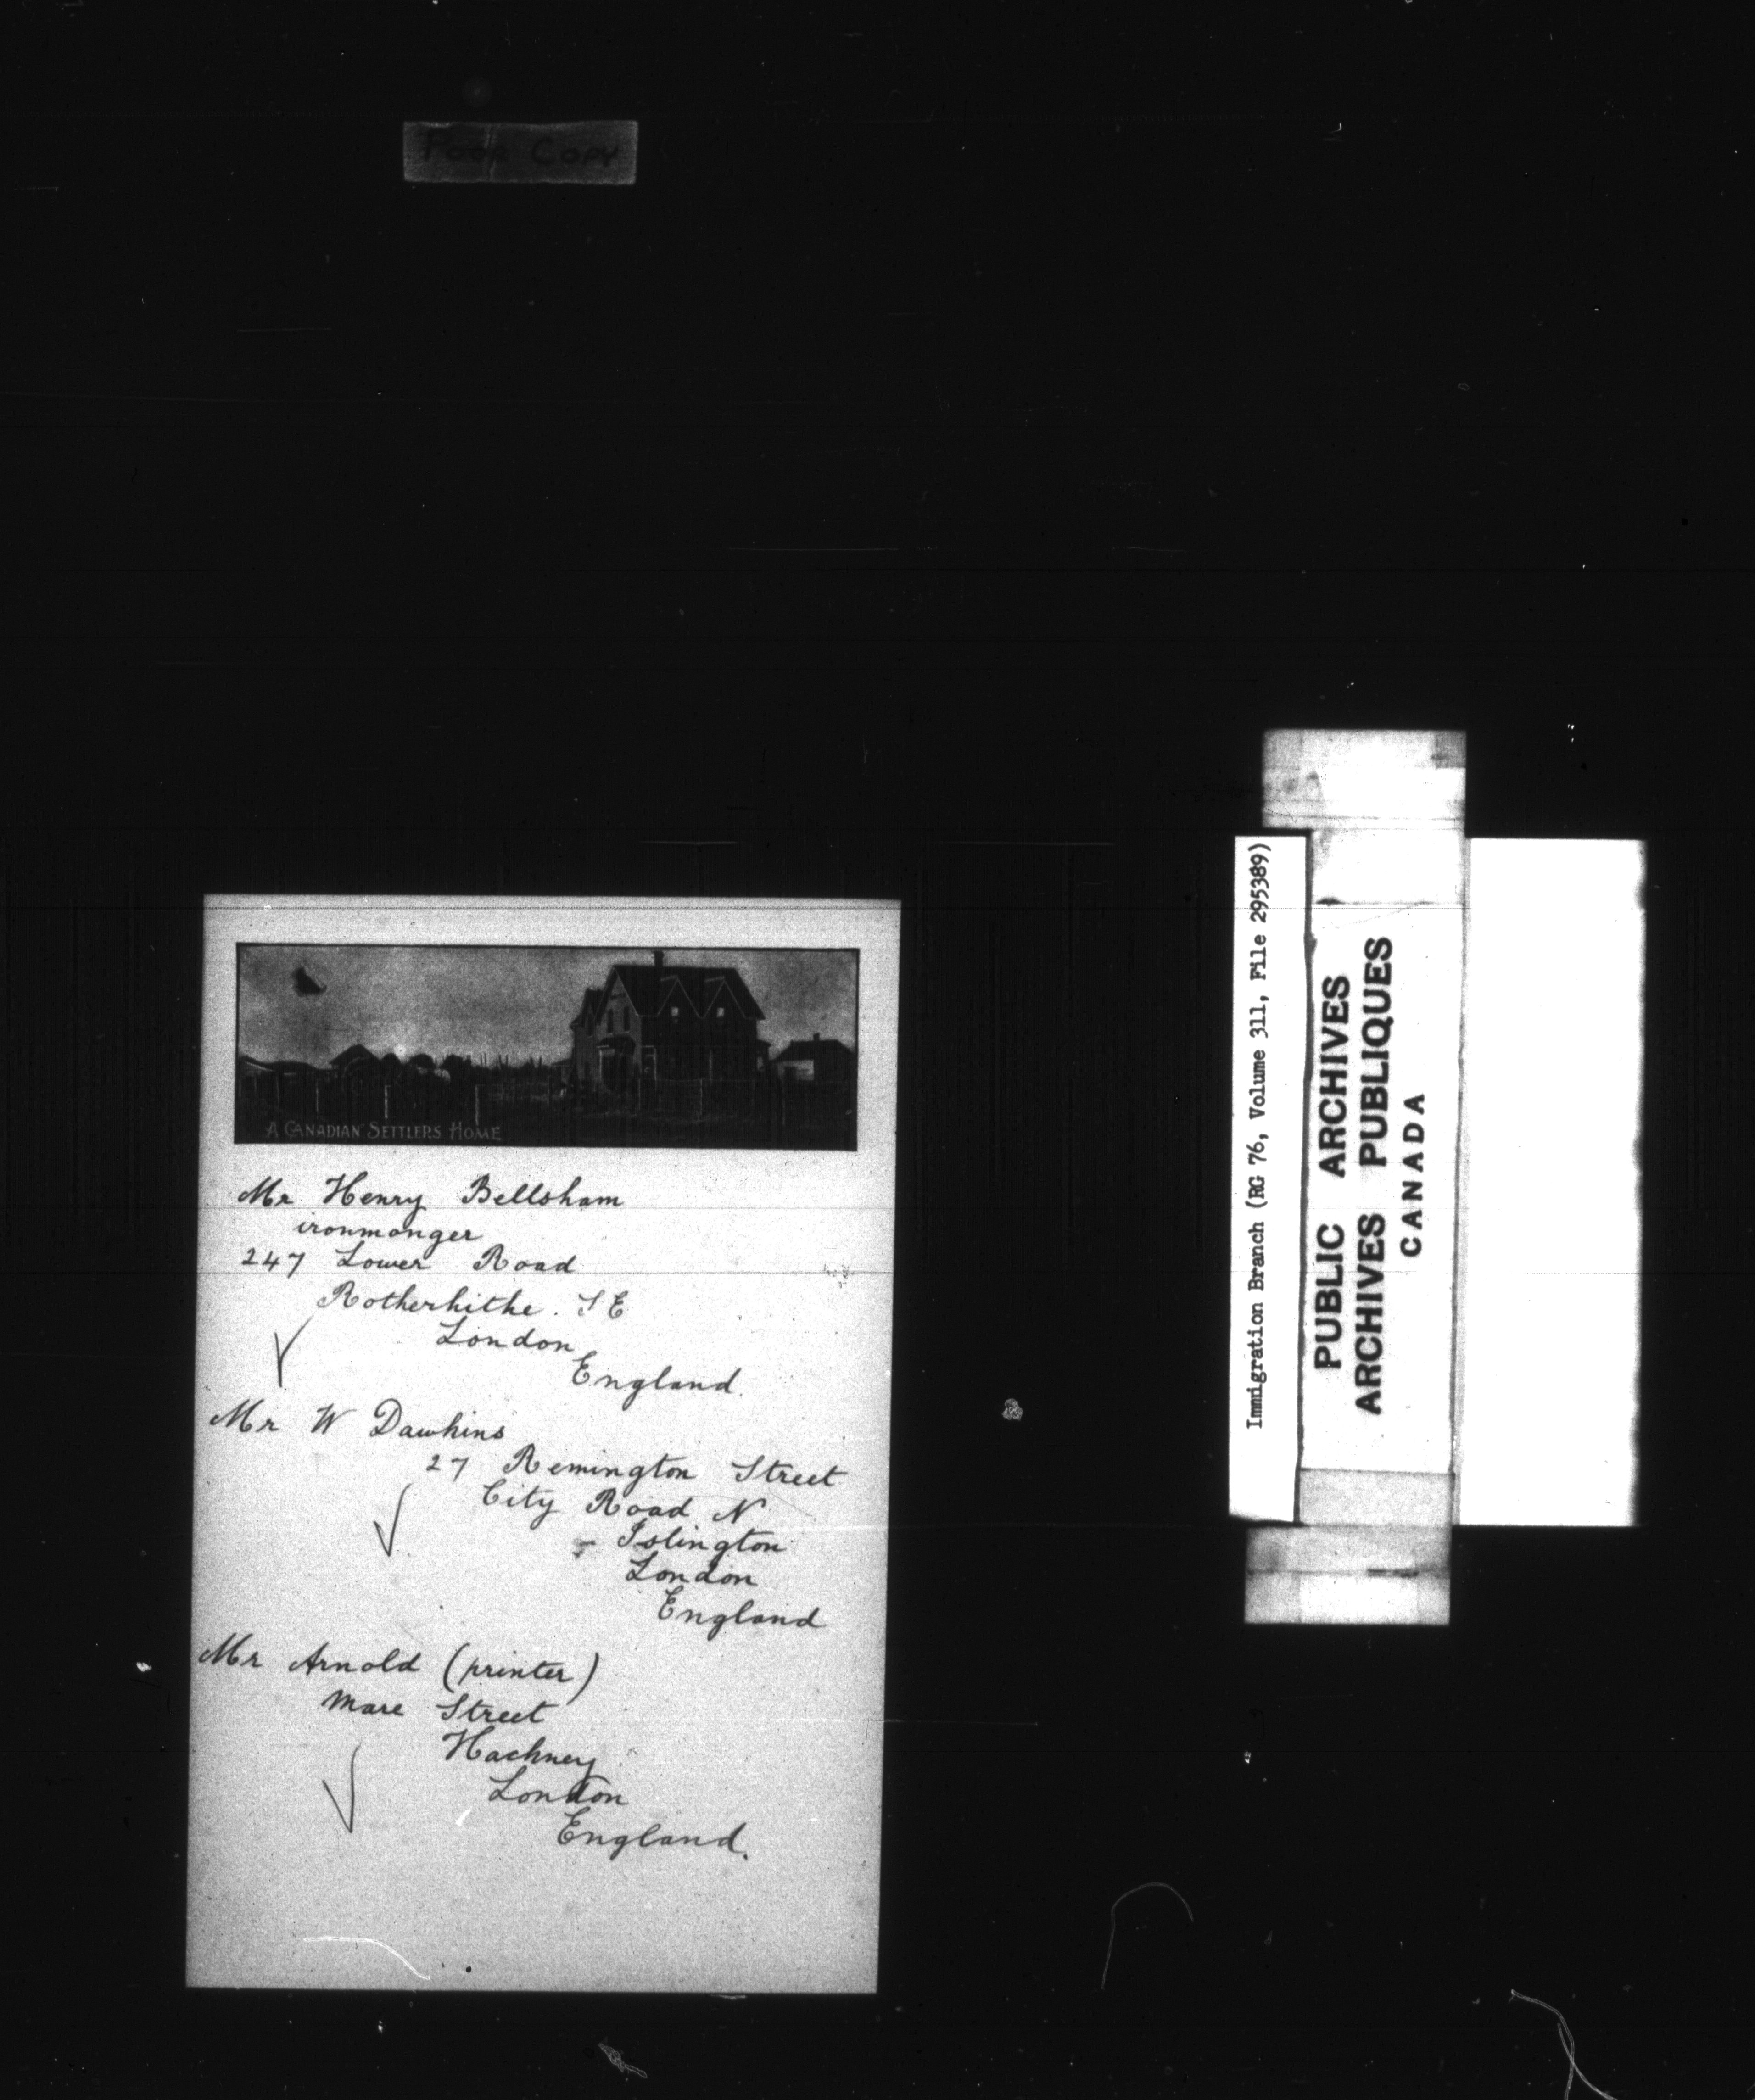 Poor Copy
A CANADIAN SETTLERS HOME
Mr Henry Bellsham
ironmonger
247 Lower Road
Rotherhithe. S E
London
England.
Mr W Dawkins
27 Remington Street
City Road N
- Islington
London
England
Mr Arnold (printer)
Mare Street
Hackney
London
England.
Immigration Branch (RG 76, Volume 311, File 295389)
PUBLIC ARCHIVES
ARCHIVES PUBLIQUES
CANADA